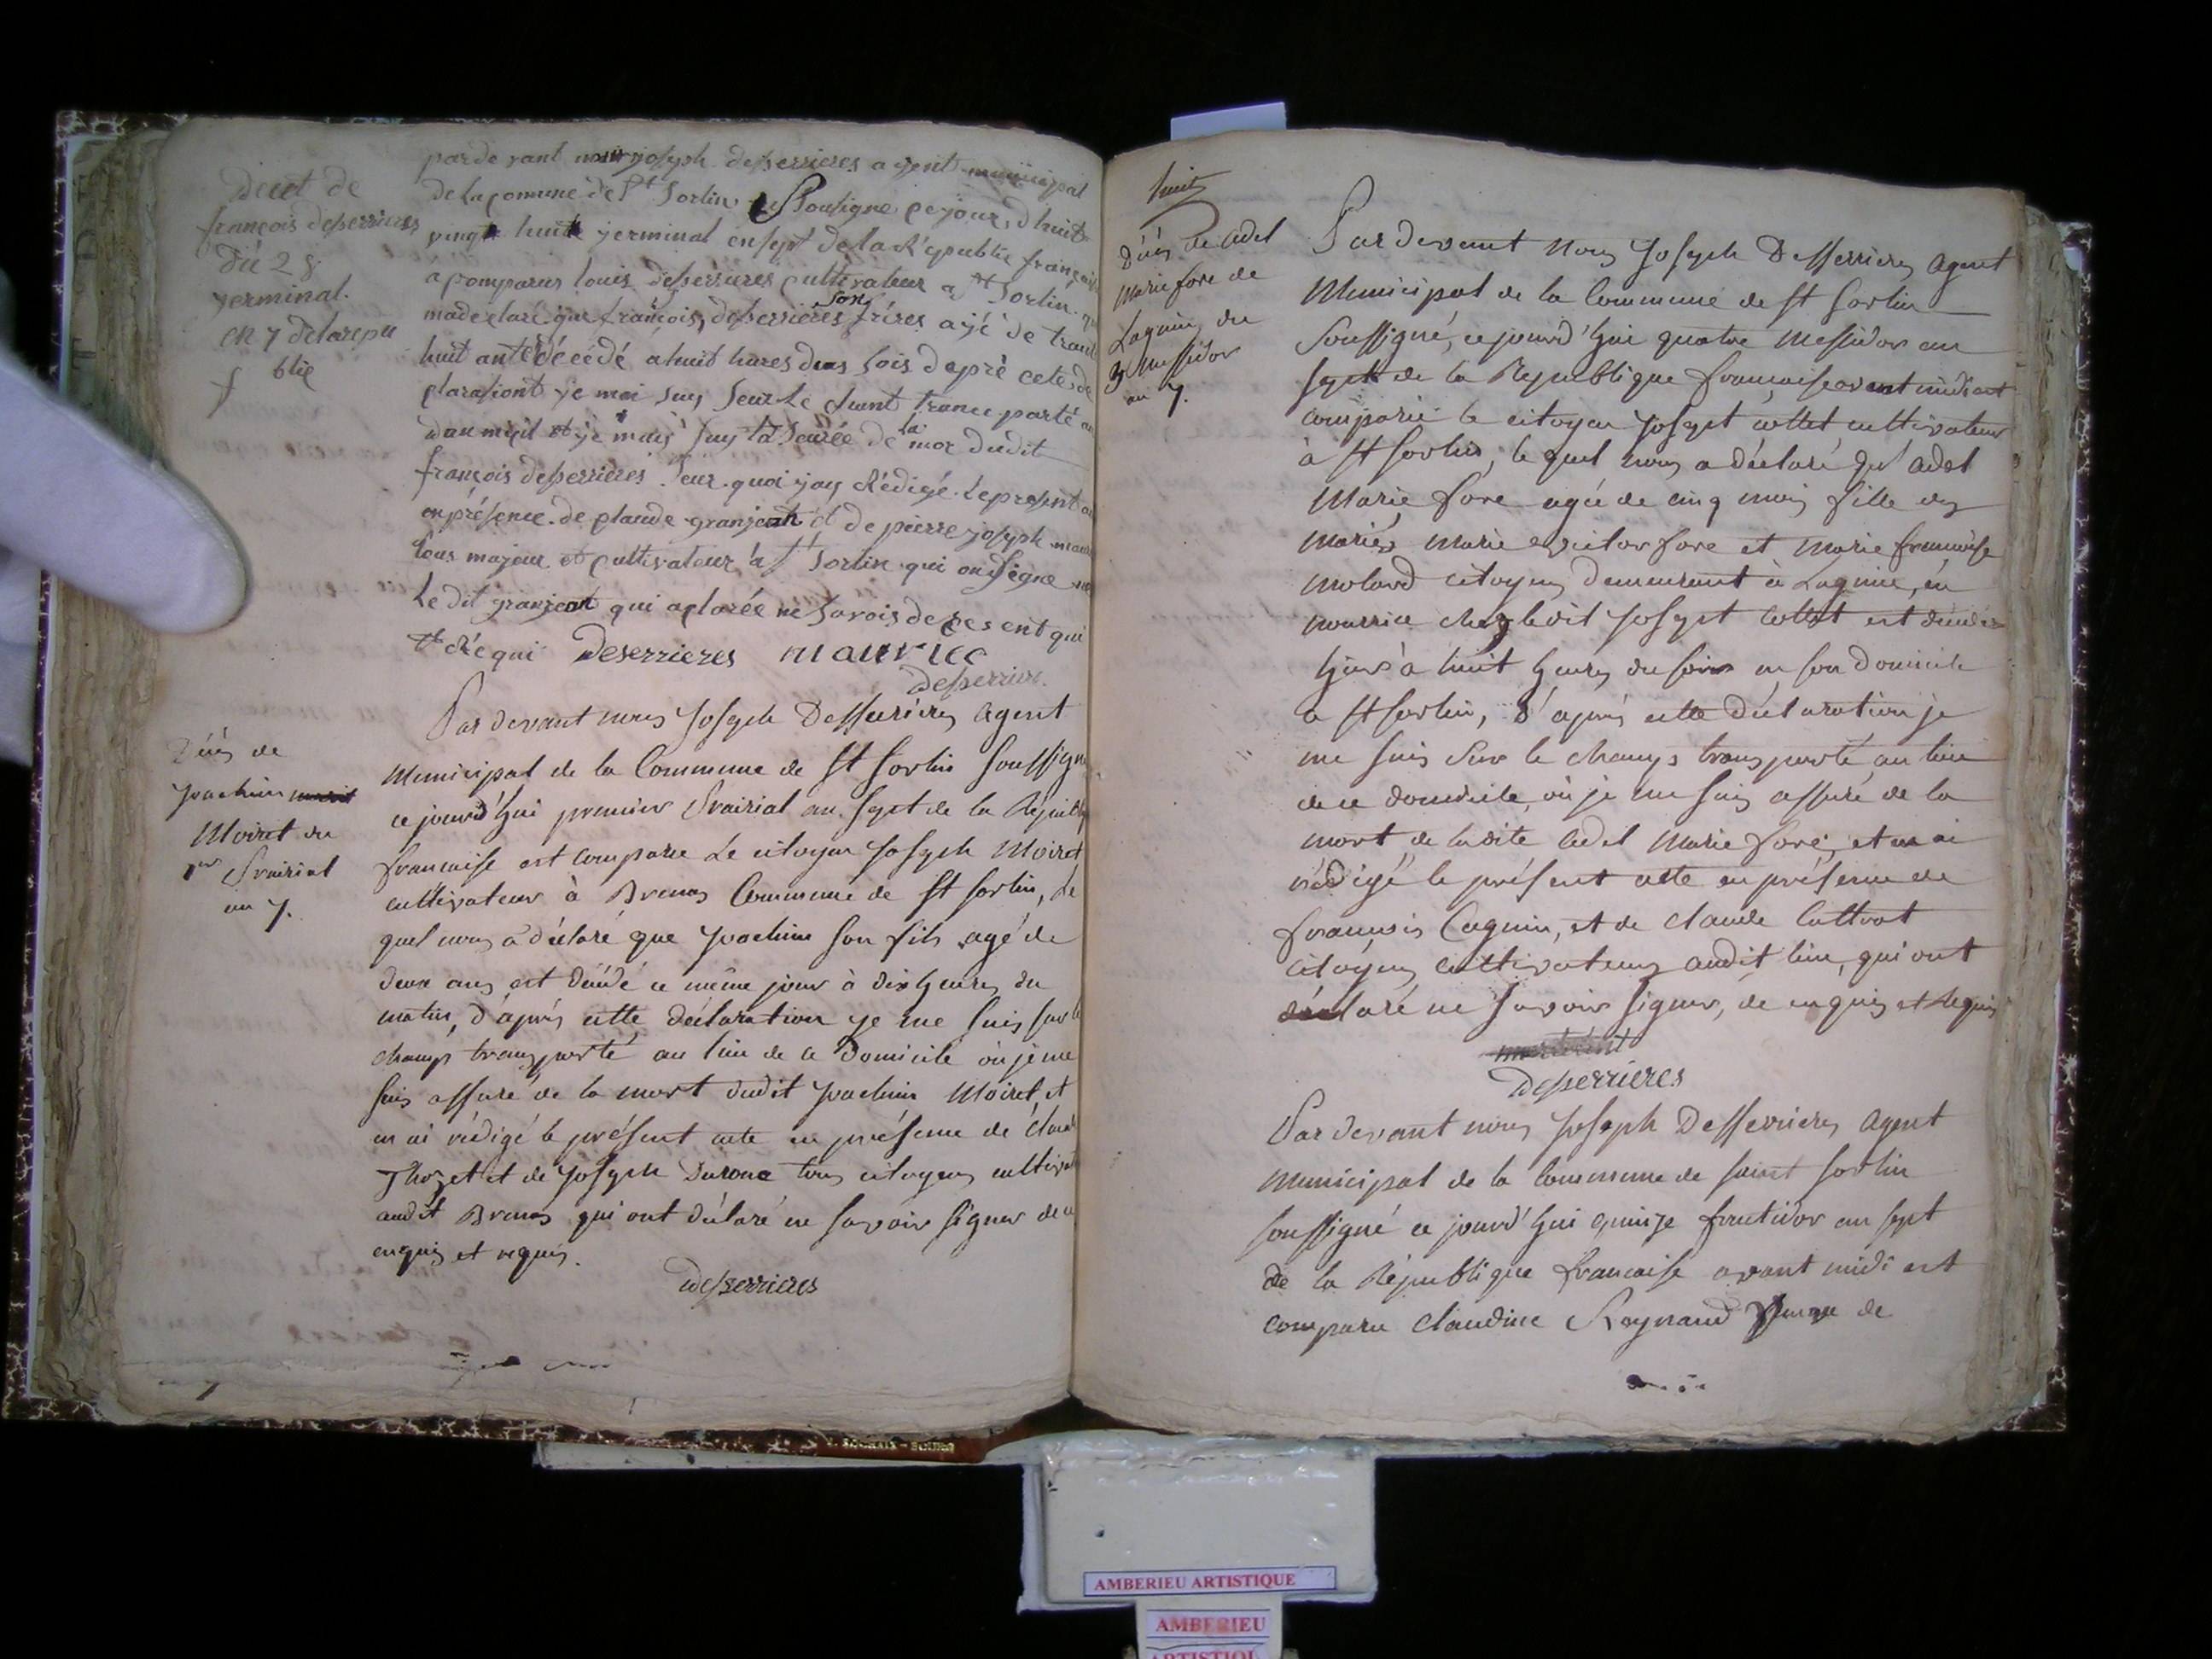 decet de
françois desserrieres
du 28
germinal.
en 7 delarepu
blie
par de vant nous joseph desserrieres agent municipal
de la comune de St Sorlin Sousigne ce jour d huit
vingt huit jerminal en sept de la République françois
a comparus louis desserrieres cultivateur a St Sorlin
ma declaré que françois desserrieres son frères ajé de trant
huit ant é décédé a huit hures deus sois daprè cete dé
claration je moi suy seur le chant trance parté au
domicil et je mais suy la seurée de la mor dudit
françois desserrieres. Seur quoi jay Rédigé le present
en présence de claude granjean et de pierre joseph
tous majeur et cultivateur a St Sorlin qui on signe
Le dit granjean qui a clarée ne savois de ces ent qui
et Réqui Deserrieres maurice
Desserrieres
Décès de
Joachim
Moiret du
1er Prairial
an 7.
Par devant nous Joseph Desserrières Agent
Municipal de la Commune de St Sorlin Soussigné
ce jourd'hui premier Prairial an sept de la Républ
francaise est comparu Le citoyen Joseph Moiret
cultivateur à Brenas Commune de St Sorlin, Le
quel nous a déclaré que Joachim son fils agé de
deux ans est décédé ce même jour à dix heures du
matin, d'après cette déclaration je me suis sur le
champs transporté au lieu de ce domicile où je me
suis assuré de la mort dudit Joachim Moiret, et
en ai rédigé le présent acte en présence de Claude
Thozet et de Joseph Durone tous citoyens cultivat
audit Brenas qui ont déclaré ne savoir signer de ce
enquis et requis.
desserrieres
huit
Décès de Adel
Marie fore de
Lagnieu du
3 Messidor
an 7.
Par devant nous Joseph Desserrieres Agent
Municipal de la Commune de St Sorlin
Soussigné, cejourd'hui quatre Messidor an
sept de la Republique francaise avant midi est
comparu le citoyen Josept collet cultivateur
à St Sorlin, le quel nous a déclaré qu'Adel
Marie fore agée de cinq mois fille des
mariés Marie victor fore et Marie francoise
molard citoyens demeurant à Lagnieu, en
nourrice chez ledit Josept Collet est décédée
hier à huit heures du soir en son domicile
a St Sorlin, d'après cette déclaration je
me suis sur le champs transporté au lieu
de ce domicile, où je me suis assuré de la
mort de ladite Adel Marie fore, et en ai
rédigé le présent acte en présence de
francois Cagnin, et de claude Cattrot
citoyens cultivateurs audit lieu, qui ont
déclaré ne savoir signer, de enquis et Requis
desserrieres
Par devant nous Joseph Desserrieres Agent
municipal de la Commune de saint Sorlin
soussigné ce jourd'hui quinze fructidor an sept
de la République francaise avant midi est
comparu Claudine Reynaud femme de
AMBERIEU ARTISTIQUE
AMBERIEU
ARTISTIQUE